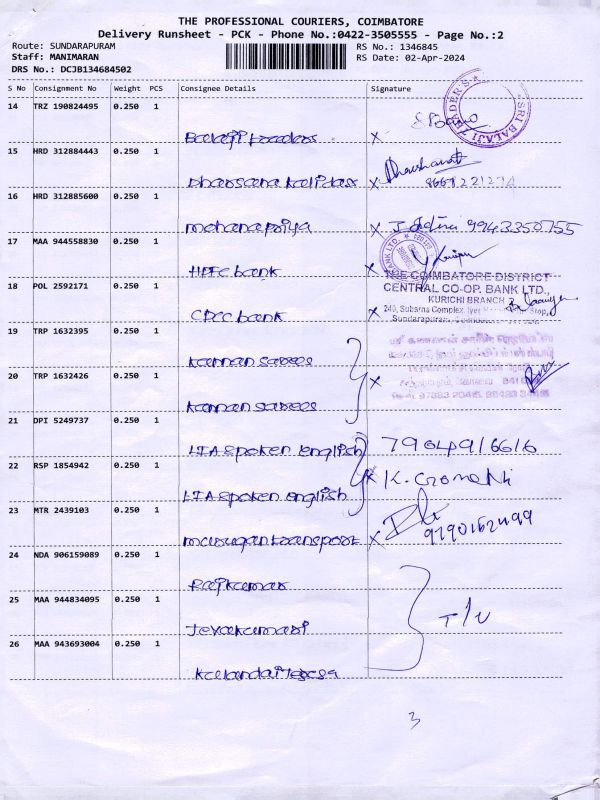 THE PROFESSIONAL COURIERS, COIMBATORE
Delivery Runsheet - PCK - Phone No.:0422-3505555 - Page No.:2
Route: SUNDARAPURAM
RS No.: 1346845
Staff: MANIMARAN
RS Date: 02-Apr-2024
DRS No.: DCJB134684502
S No Consignment No Weight PCS Consignee Details Signature
14 TRZ 190824495 0.250 1
SRI BALAJI TRADER'S
Balaji traders x
15 HRD 312884443 0.250 1
Dharsana kalidass x
16 HRD 312885600 0.250 1
mohanapriya x 9943350755
17 MAA 944558830 0.250 1
HDFC bank x
THE COIMBATORE DISTRICT
18 POL 2592171 0.250 1
CENTRAL CO-OP. BANK LTD.,
KURICHI BRANCH
CDCC bank x
19 TRP 1632395 0.250 1
Kannan sarees
20 TRP 1632426 0.250 1 x
Kannan sarees
21 DPI 5249737 0.250 1
LIA spoken english 7904916616
22 RSP 1854942 0.250 1
LIA spoken english x
23 MTR 2439103 0.250 1
murugan transport x 9790162499
24 NDA 906159089 0.250 1
Rajkumar
25 MAA 944834095 0.250 1
Jeyakumari
26 MAA 943693004 0.250 1
3